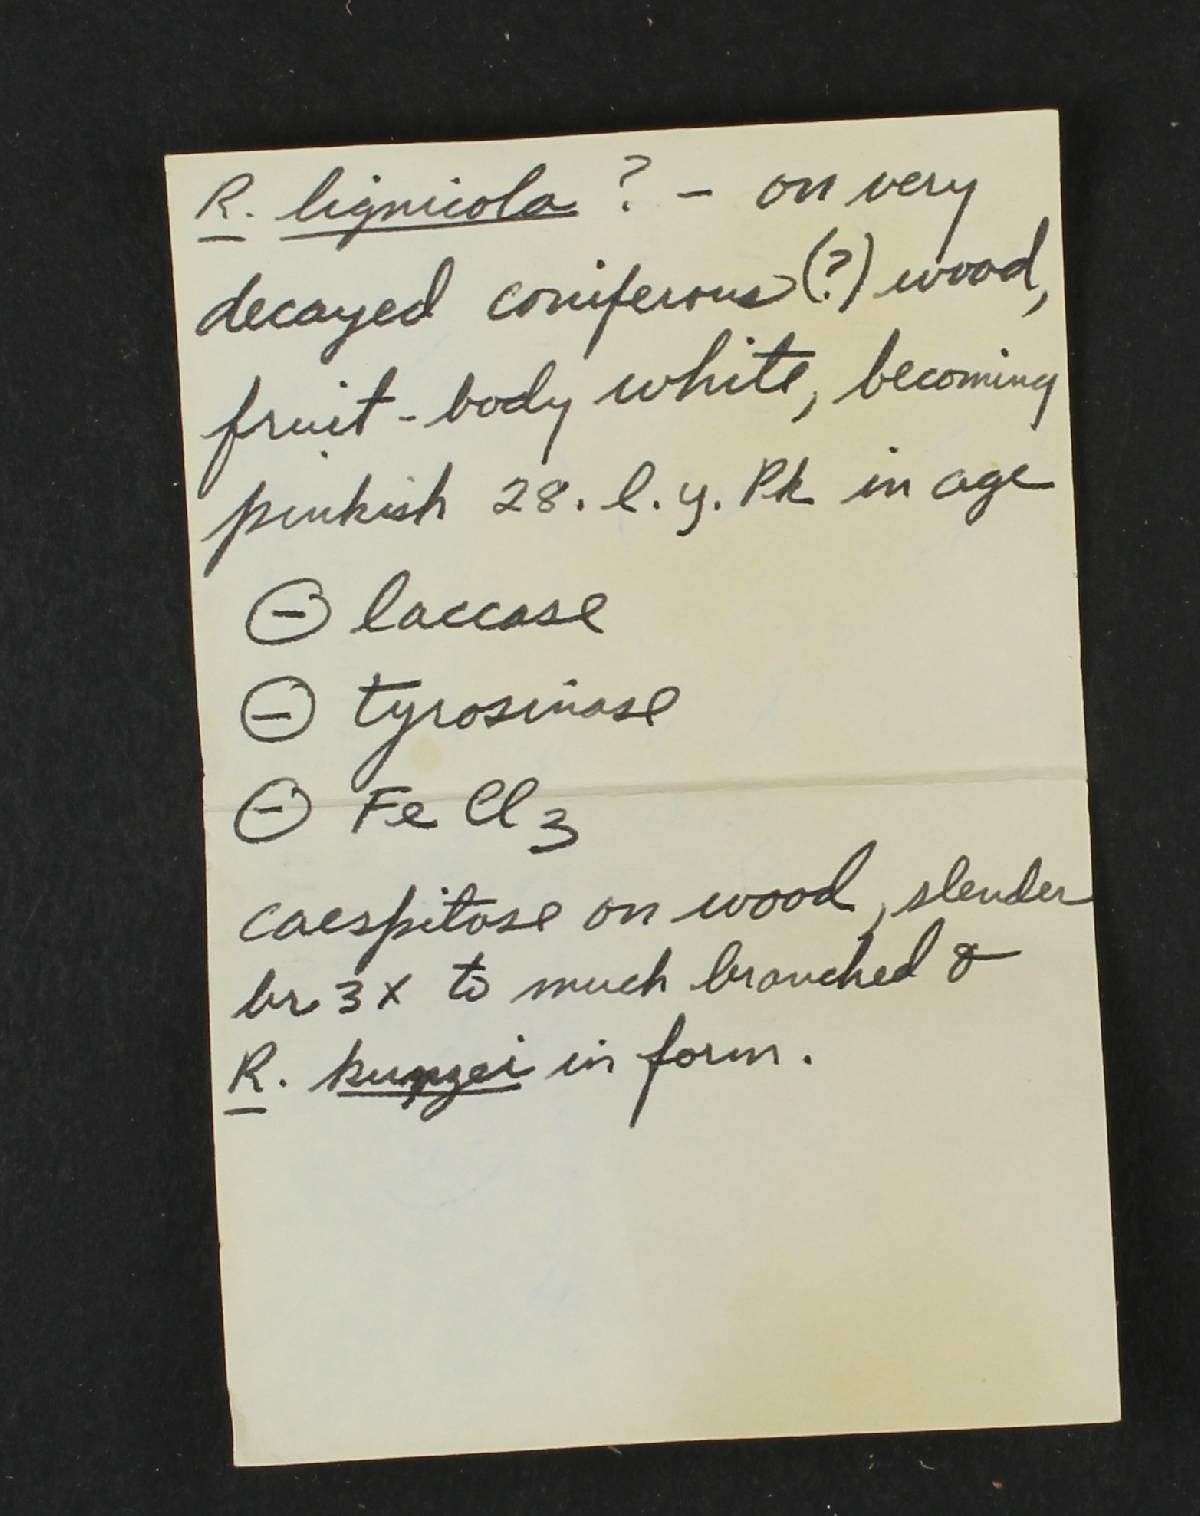 R. lignicola ? - on very
decayed coniferous (?) wood,
fruit-body white, becoming
pinkish 28. l. y. Pk in age
⊖ laccase
⊖ tyrosinase
⊖ FeCl3
caespitose on wood, slender
br 3x to much branched &
R. kunzei in form.